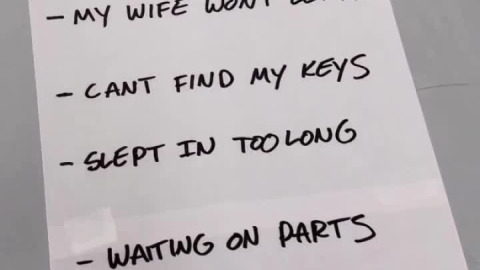 - MY WIFE WONT
- CANT FIND MY KEYS
- SLEPT IN TOO LONG
- WAITING ON PARTS